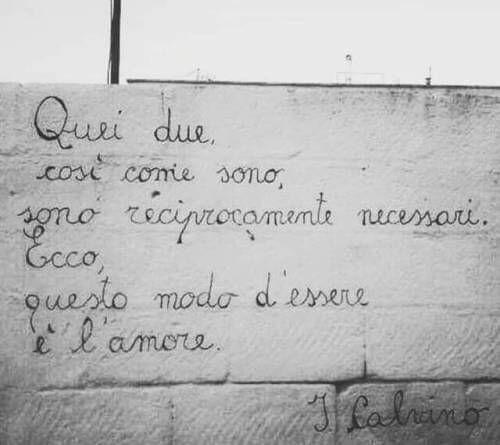 Quei due,
così come sono,
sono reciprocamente necessari.
Ecco,
questo modo d'essere
è l'amore.
I Calvino